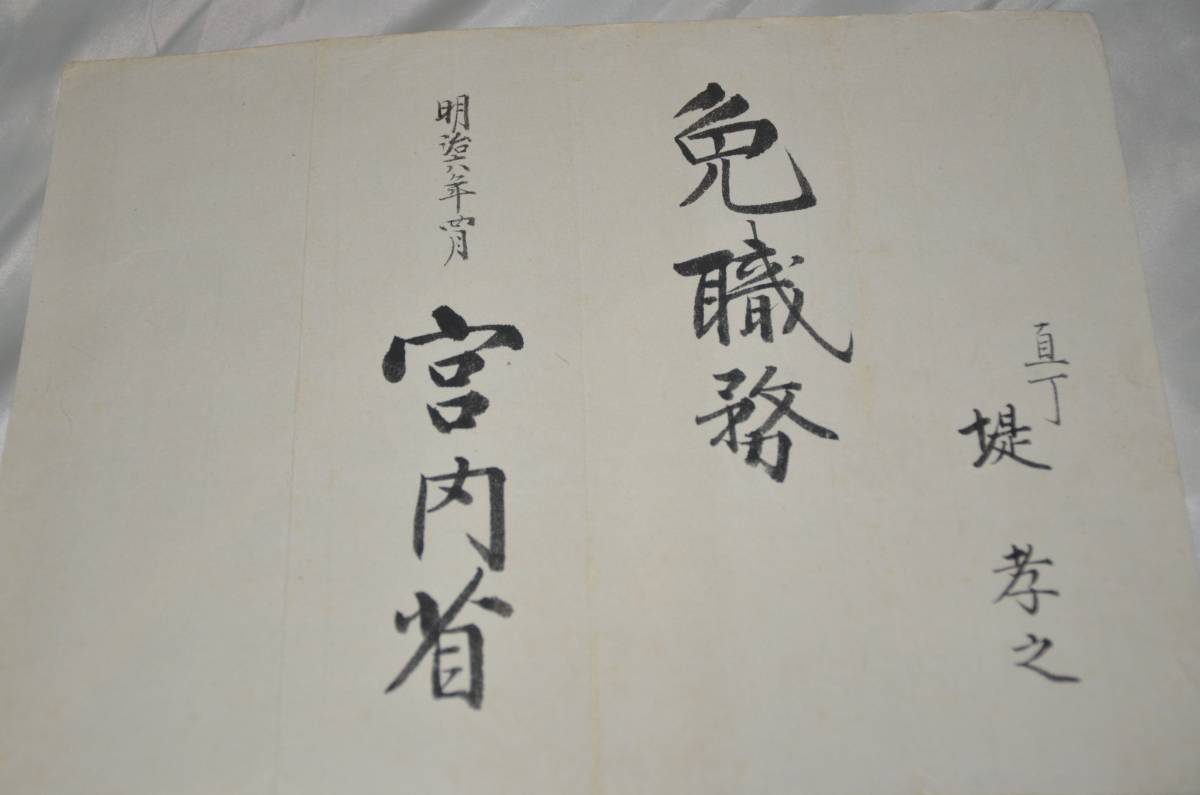 直丁
堤 孝之
免職務
明治六年四月
宮内省